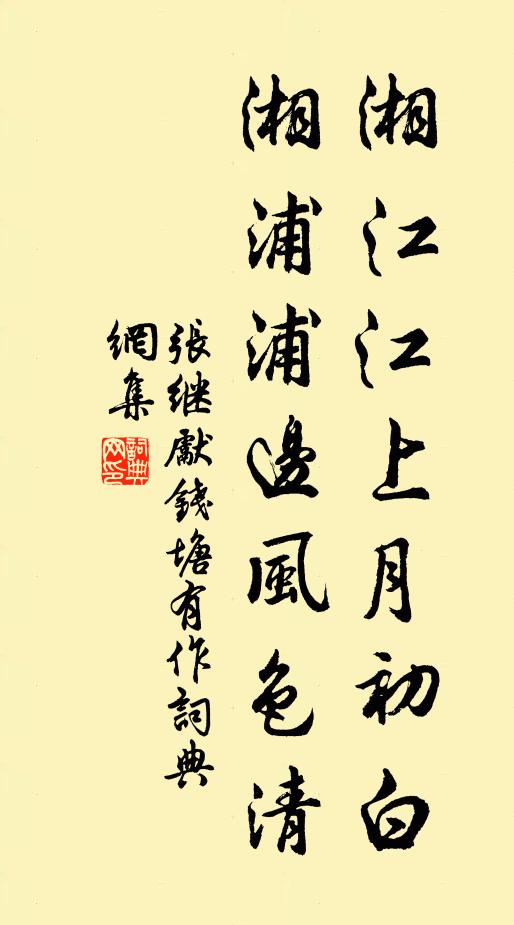 湘江江上月初白
湘浦浦邊風色清
張继獻錢塘有作詞典
網集
詞典
网印